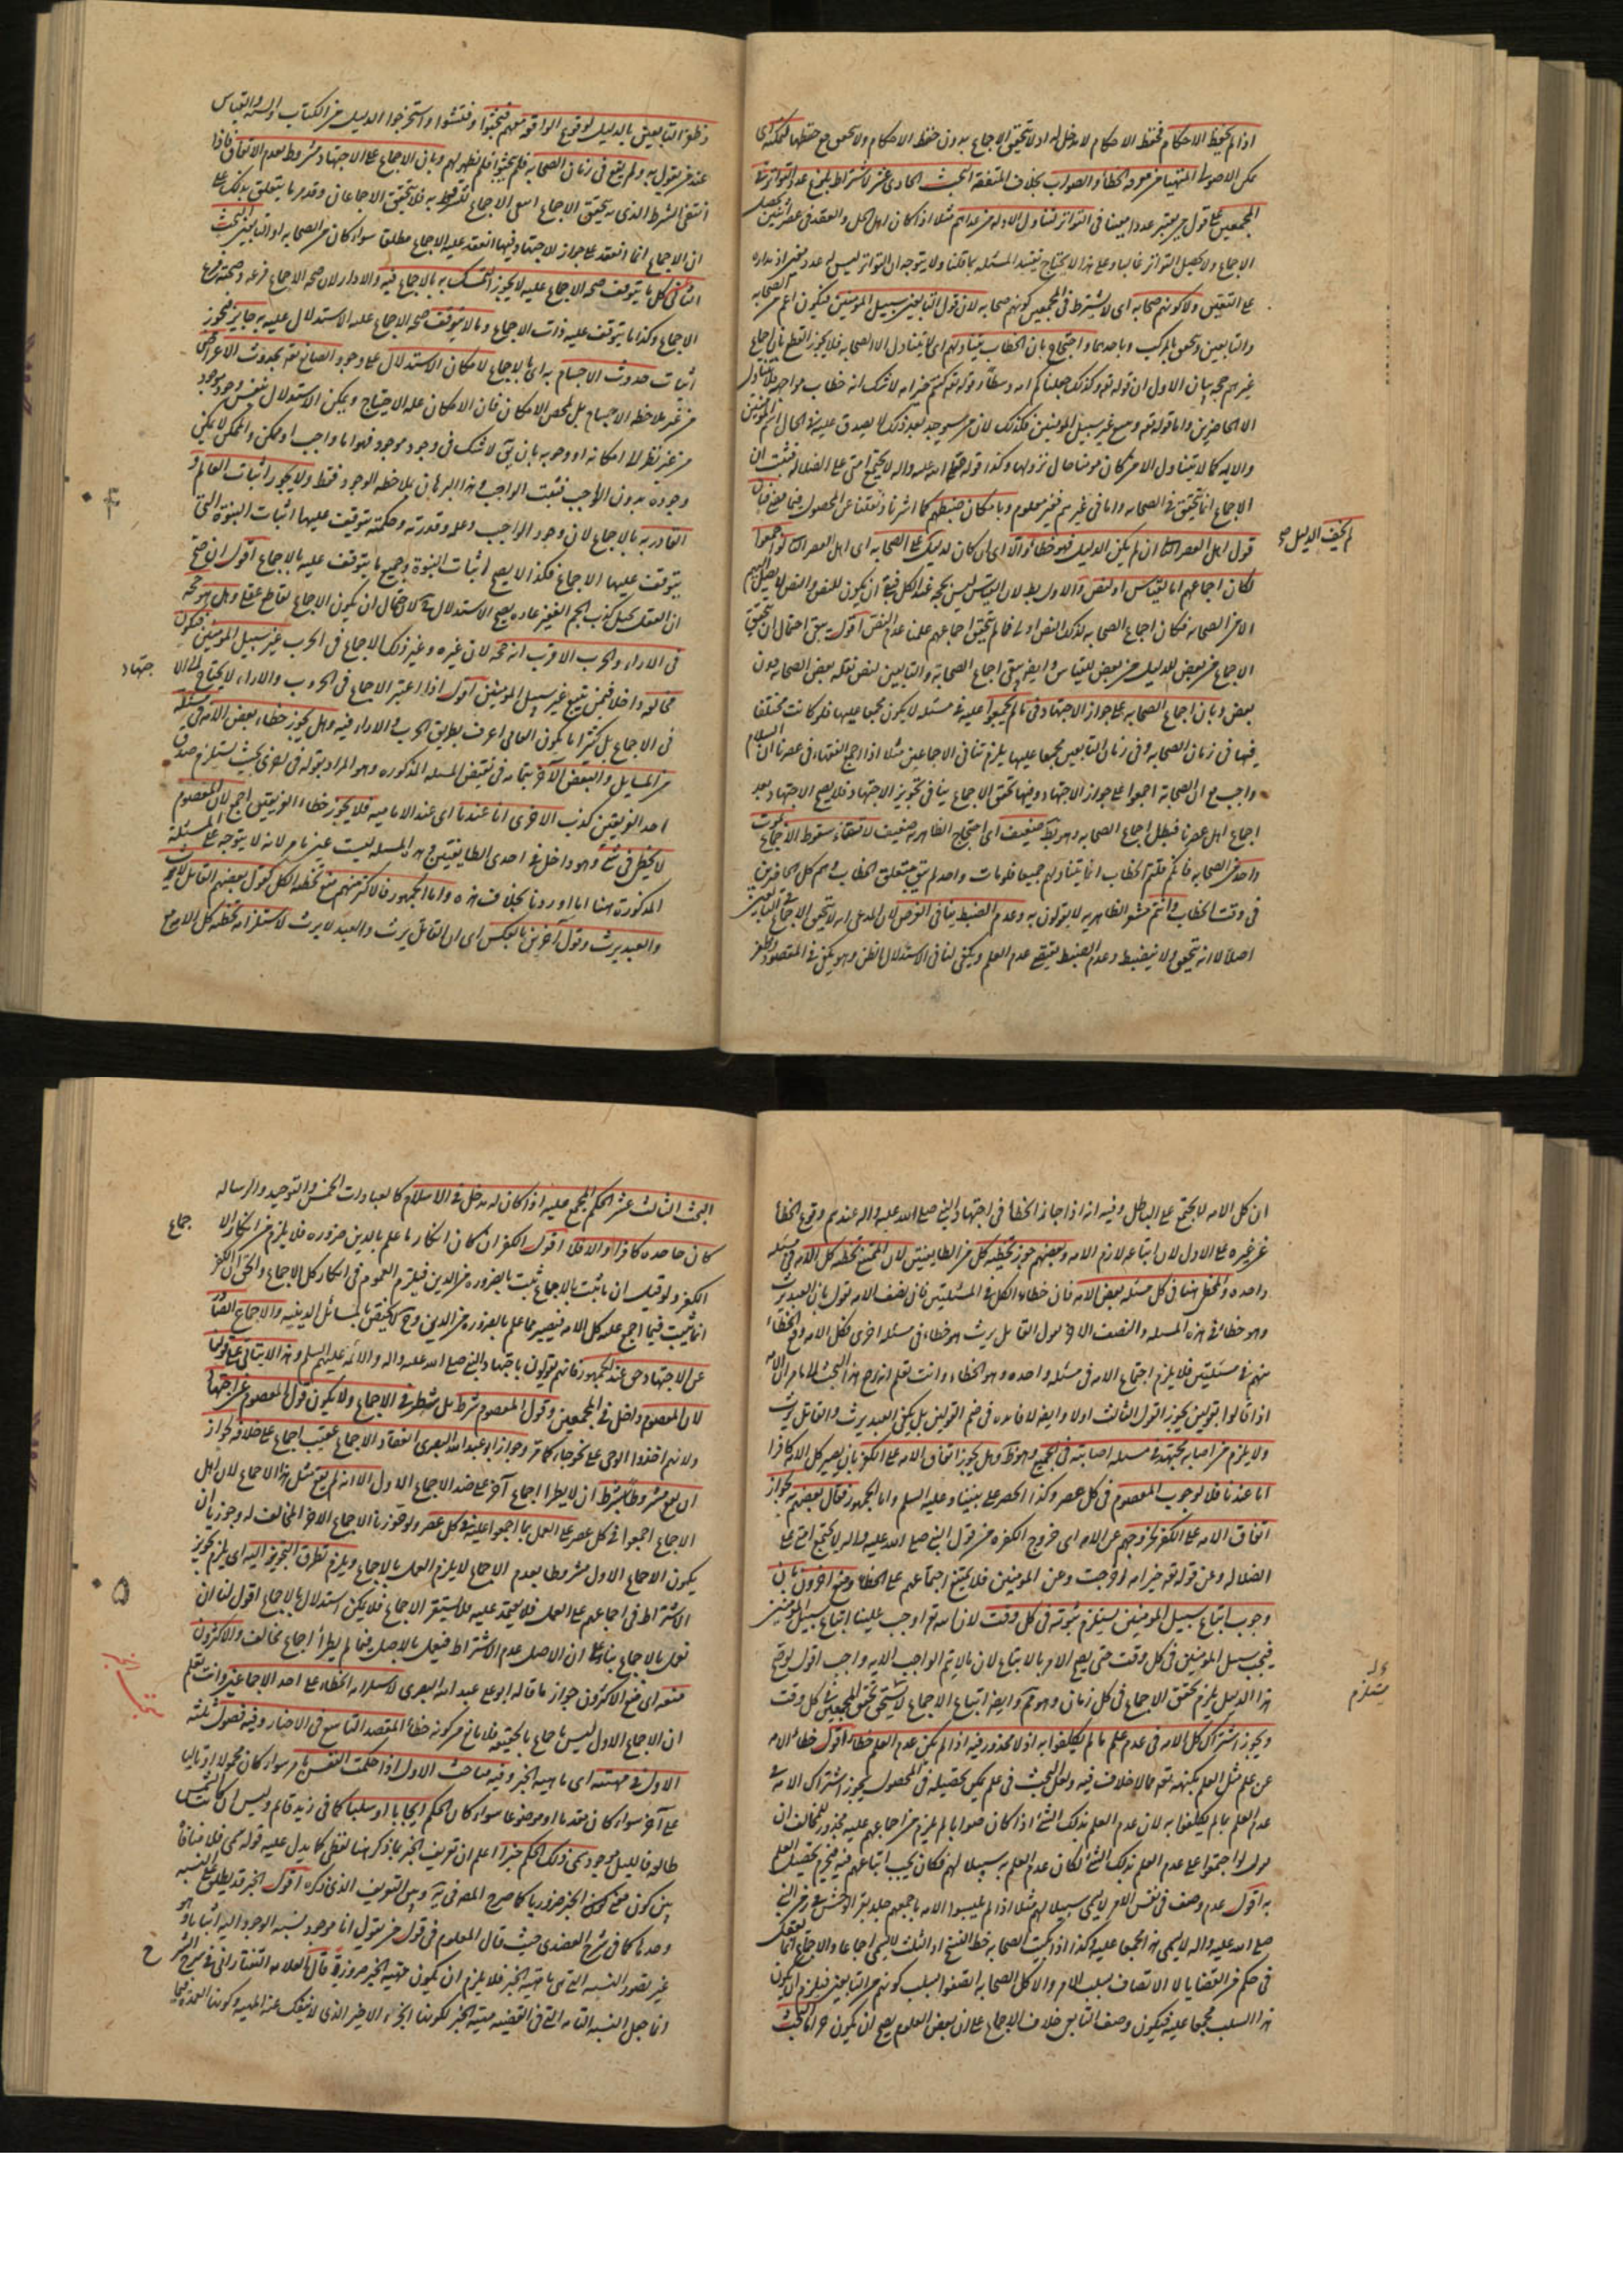 اذا لم يحفظ الاحكام فحفظ الاحكام لا مدخل له اذ لا يتحقق الاجماع بدون حفظ الاحكام ولا يتحقق مع حفظها
من الاصولي المتهيا معرفه الخطأ والصواب بخلاف المتفقه البحث الحادى عشر لا يشترط بلوغ عدد التواتر
المجمعين على قول من يعتبر عددا معينا فى التواتر لتناول الادله مثلا اذا كان اهل الحل والعقد فى عصر اثنين يحصل
الاجماع ولا يحصل التواتر غالبا وعلى هذا لا يحتاج تقييد المسئله بما قلنا ولا يتوجه ان التواتر ليس له عدد معين
على التعيين ولا كونهم صحابه اى لا يشترط فى المجمعين كونهم صحابه لان قول التابعين سبيل المؤمنين فيكون اعم من الصحابه
والتابعين وتحقق بالمركب وباحدهما واحتجاج بان الخطاب يتناولهم اى لا يتناول الا الصحابه فلا يجوز القطع بان اجماع
غيرهم حجه بيان الاول ان قوله تع وكذلك جعلناكم امه وسطا وقوله تع كنتم خير امه لا شك انه خطاب مواجهه فلا يتناول
الا الحاضرين واما قوله تع ويتبع غير سبيل المؤمنين فكذلك لان من سيوجد بعد ذلك لا يصدق عليه فى الحال اسم المؤمنين
والايه كالا يتناول الا من كان مؤمنا حال نزولها وكذا قوله صلى الله عليه واله لا يجتمع امتى على الضلاله فثبت ان
الاجماع انما يتحقق فى الصحابه واما فى غيرهم فغير معلوم وبامكان ضبطهم كما اشرنا ونقلنا عن المحصول فيما مضى
قول اهل العصر الثانى ان لم يكن لدليل فهو خطأ والا اى ان كان لدليل على الصحابه اى اهل العصر الثانى لو اجمعوا
لم يخف الدليل صح
لكان اجماعهم اما لقياس او لنص والاول بط لان القياس ليس بحجه عند الكل فبقى ان يكون للنص والنص لا يصل اليهم
الا من الصحابه فكان اجماع الصحابه لذلك النص اولى فلما لم يتحقق اجماعهم علمنا عدم النص اقول يبقى احتمال ان يتحقق
الاجماع من بعض لدليل من بعض للقياس وايض يبقى اجماع الصحابة والتابعين لنص نقله بعض الصحابه دون
بعض وبان اجماع الصحابه على جواز الاجتهاد فى ما لم يجمعوا عليه فى مسئله لا يكون مجمعا عليها فلو كانت مختلفا
فيها فى زمان الصحابه وفى زمان التابعين مجمعا عليها يلزم تنافى الاجماعين مثلا اذا اجمع الفقهاء فى عصرنا ان السلام
واجب مع ان الصحابة اجمعوا على جواز الاجتهاد وفيها تحقق الاجماع ينافى تجويز الاجتهاد فلا يصح الاجتهاد بعد
اجماع اهل عصرنا فبطل اجماع الصحابه وهو بط ضعيف اى احتجاج الظاهريه ضعيف لا تنقضاء سقوط الاجماع بموت
واحد من الصحابه فانكم قلتم الخطاب انما يتناولهم جميعا فلو مات واحد لم يبق متعلق الخطاب وهم كل الحاضرين
فى وقت الخطاب وانتم معشر الظاهريه لا يقولون به وعدم الضبط ينافى الغرض لان المدعى انه لا يتحقق الاجماع فى التابعين
اصلا لا انه يتحقق ولا ينضبط وعدم الضبط يقتضى عدم العلم ويكفى لنا فى الاستدلال الظن وهو يمكن فى المقصود وظفر
وظفر التابعين بالدليل لوقوع الواقعه منهم فبحثوا وفتشوا واستخرجوا الدليل من الكتاب والسنه والقياس
عند من يقول به ولم يقع فى زمان الصحابه فلم يبحثوا فلم يظهر لهم وبان الاجماع على الاجتهاد مشروط بعدم الاتفاق فاذا
انتفى الشرط الذى به يتحقق الاجماع انتفى الاجماع المشروط به فلا يتحقق الاجماعان وقد مر ما يتعلق بذلك على
ان الاجماع انما انعقد على جواز الاجتهاد فيها انعقد عليه الاجماع مطلقا سواء كان من الصحابه او التابعين البحث
الثانى عشر كل ما يتوقف صحه الاجماع عليه لا يجوز التمسك به بالاجماع فيه والا دار لان صحه الاجماع فرعه وصحته فرع
الاجماع وكذا ما يتوقف عليه ذات الاجماع وما لا يتوقف صحه الاجماع عليه الاستدلال عليه به جايز فيجوز
اثبات حدوث الاجسام به اى بالاجماع لامكان الاستدلال على وجود الصانع تع بحدوث الاعراض
من غير ملاحظه الاجسام بل لمحض الامكان فان الامكان عله الاحتياج ويمكن الاستدلال بنفس وجود موجود
من غير نظر الى امكانه او وجوبه بان يق لا شك فى وجود موجود فهو اما واجب او ممكن والممكن لا يمكن
وجوده بدون الواجب فيثبت الواجب وهذا البرهان بملاحظه الوجود فقط ولا يجوز اثبات العالم و
القادر به بالاجماع لان وجود الواجب وعلمه وقدرته وحكمته يتوقف عليها اثبات النبوة التى
يتوقف عليها الاجماع فكذا لا يصح اثبات النبوة وجميع ما يتوقف عليه بالاجماع اقول ان صح
ان العقل يحيل كذب الجم الغفير عاده يصح الاستدلال به لاحتمال ان يكون الاجماع لقاطع عقلى وهل هو حجه
فى الاراء والحرب الاقرب انه حجه لان غيره وغير ذلك الاجماع فى الحرب غير سبيل المؤمنين فيكون
مخالفه داخلا فيمن يتبع غير سبيل المؤمنين اقول اذا اعتبر الاجماع فى الحروب والاراء لا يحتاج الى الا
جتهاد
فى الاجماع بل كثيرا ما يكون العامى اعرف بطريق الحرب والاراء فيه وهل يجوز خطاء بعض الامه فى مسئله
من المسايل والبعض الآخر بمثابه فى نقيض المسئله المذكوره وهو المراد بقوله فى اخرى بحيث يستلزم صدق
احد الفريقين كذب الاخرى اما عندنا اى عند الاماميه فلا يجوز خطاء الفريقين اجمع لان المعصوم
لا يخطئ فى شئ وهو داخل فى احدى الطايفتين وهذه المسئله ليست عين ما مر لانه لا يتوجه على المسئله
المذكورة هنا ما اوردنا بخلاف هذه واما الجمهور فالاكثر منهم منع تخطئه الكل كقول بعضهم القاتل لا يرث
والعبد يرث وقول آخرين بالعكس اى ان القاتل يرث والعبد لا يرث لاستلزامه تخطئه كل الامه مع
ان كل الامه لا يجتمع على الباطل وفيه انه اذا جاز الخطأ فى اجتهاد النبى صلى الله عليه واله عندهم وقوع الخطأ
عن غيره على الاول لان اتباعه لازم الامه وبعضهم جوز تخطئه كل من الطايفتين لان الممتنع تخطئه كل الامه فى مسئله
واحده والمخطى هنا فى كل مسئله بعض الامه فان خطاء الكل فى المسئلتين فان نصف الامه يقول بان العبد يرث
وهو خطا فى هذه المسئله والنصف الاخر يقول القاتل يرث هو خطاء فى مسئله اخرى فكل الامه وقع الخطاء
منهم فى مسئلتين فلا يلزم اجتماع الامه فى مسئله واحده وهو الخطاء وانت تعلم انه رجع هذا البحث الى ما مر ان الامه
اذا قالوا بقولين يجوز القول الثالث اولا وايض لا فائده فى ضم القولين بل يكفى العبد يرث والقاتل يرث
ولا يلزم من اصابه مجتهد فى مسئله اصابته فى الجميع وهو ظ وهل يجوز اتفاق الامه على الكفر بان يصير كل الامه كافرا
اما عندنا فلا لوجوب المعصوم فى كل عصر وكذا الحصر على نبينا وعليه السلم واما الجمهور فقال بعضهم بجواز
اتفاق الامه على الكفر لخروجهم عن الامه اى خروج الكفره من قول النبى صلى الله عليه واله لا يجتمع امتى على
الضلاله وعن قوله تع خير امه اخرجت وعن المؤمنين فلا يمتنع اجماعهم على الخطاء ومنع اخرون بان
وجوب اتباع سبيل المؤمنين يستلزم ثبوته فى كل وقت لان الله تع اوجب علينا اتباع سبيل المؤمنين
فيجب سبيل المؤمنين فى كل وقت حتى يصح الامر بالاتباع لان ما لا يتم الواجب الا به واجب اقول لو صح
هذا الدليل يلزم تحقق الاجماع فى كل زمان وهو كما ترى وايض اتباع الاجماع لا يستدعى تحقق المجمعين فى كل وقت
ويجوز اشتراك كل الامه فى عدم علم ما لم يكلفوا به اذ لا محذور فيه اذا لم يكن عدم العلم خطاء اقول خطاء الامه
عن علم مثل العلم بكنهه تع مما لا خلاف فيه ولعل البحث فى علم يمكن تحصيله فى المحصول يجوز اشتراك الامه فى
عدم العلم بما لم يكلفوا به لان عدم العلم بذلك الشئ اذا كان صوابا لم يلزم من اجماعهم عليه محذور للمخالف ان
يقول لو اجتمعوا على عدم العلم بذلك الشئ لكان عدم العلم به سبيلا لهم فكان يجب اتباعهم فيه فيحرم تحصيل العلم
به اقول عدم وصف فى نفس الامر لا يسمى سبيلا لهم مثلا اذا لم يلبسوا الامه باجمعهم جلد بقر الوحش فى زمن النبى
صلى الله عليه واله لا يسمى هذا مجمعا عليه وكذا اذا لم يكتب الصحابه خط النسخ او الثلث لا يسمى اجماعا والاجماع انما يعقل
فى حكم من القضايا لا الاتصاف بسلب الامر والا كل الصحابه اتصفوا بسلب كونهم من التابعين فيلزم ان يكون
هذا السلب مجمعا عليه فيكون وصف التابعى خلاف الاجماع على ان بعض العلوم يصح ان يكون حراما البحث
البحث الثالث عشر الحكم المجمع عليه اذا كان له مدخل فى الاسلام كالعبادات الخمس والتوحيد والرساله
كان جاحده كافرا والا فلا اقول الكفر ان كان انكار ما علم بالدين ضروره فلا يلزم من انكار الا
جماع
الكفر ولو قيل ان ما ثبت بالاجماع ثبت بالضروره من الدين فيلزم العموم فى انكار كل الاجماع والحق ان الكفر
انما يثبت فيما اجمع عليه كل الامه فيصير مما علم بالضروره من الدين وح لا يختص بالمسائل الدينيه والاجماع الصادر
عن الاجتهاد حق عند الجمهور فانهم يقولون باجتهاد النبى صلى الله عليه واله والائمه عليهم السلم وهذا لا يتاتى على قولنا
لان المعصوم داخل فى المجمعين وقول المعصوم شرط بل شطر فى الاجماع ولا يكون قول المعصوم عن اجتهاد
ولانهم اخذوا الوحى على نحو جاء كما مر وجواز ابو عبد الله البصرى انعقاد الاجماع عقيب اجماع على خلافه لجواز
ان يقع مشروطا بشرط ان لا يطرأ اجماع آخر على ضد الاجماع الاول الا انه لم يقع مثل هذا الاجماع لان اهل
الاجماع اجمعوا فى كل عصر على العمل بما اجمعوا عليه فى كل عصر ولو جوزنا الاجماع الاخر المخالف له وجوز بان
يكون الاجماع الاول مشروطا بعدم الاجماع لا يلزم العمل بالاجماع ويلزم تطرق التجويز اليه اى يلزم تجويز
الاشتراط فى اجماعهم على العمل فلا يعتمد عليه فلا يستقر الاجماع فلا يمكن استدلال بالاجماع اقول لنا ان
نعمل بالاجماع بناء على ان الاصل عدم الاشتراط فيعمل بالاصل فيما لم يطرأ اجماع مخالف والاكثرون
منعوه اى منع الاكثرون جواز ما قاله ابو عبد الله البصرى لاستلزامه الخطاء على احد الاجماعين وانت تعلم
ان الاجماع الاول ليس باجماع بالحقيقه فلا مانع من كونه خطأ المقصد التاسع فى الاخبار وفيه فصول ثلثه
الاول فى مهيته اى ماهيه الخبر وفيه مباحث الاول اذا حكمت النفس بامر سواء كان محمولا او تاليا
على آخر سواء كان مقدما او موضوعا سواء كان الحكم ايجابا او سلبا كما فى زيد قائم وليس ان كانت الشمس
طالعه فالليل موجود سمى ذلك الحكم خبرا اعلم ان تعريف الخبر بما ذكر هنا لفظى كما يدل عليه قوله سمى فلا منافاة
بين كون معنى كون الخبر ضروريا كما صرح المصه فى يه وبين التعريف الذى ذكره اقول الخبر قد يطلق على النسبه
وحدها كما فى شرح العضدى حيث قال المعلوم فى قول من يقول انا موجود نسبه الوجود اليه اثباتا وهو
غير تصور النسبه التى هى ماهيه الخبر فلا يلزم ان يكون مهيه الخبر ضرورية قال العلامه التفتازانى فى شرح الشرح
انما جعل النسبه التامه التى فى القضيه مهية الخبر لكونها الجزء الاخير الذى لا ينفك عنه المهيه وكونها العمده فيها